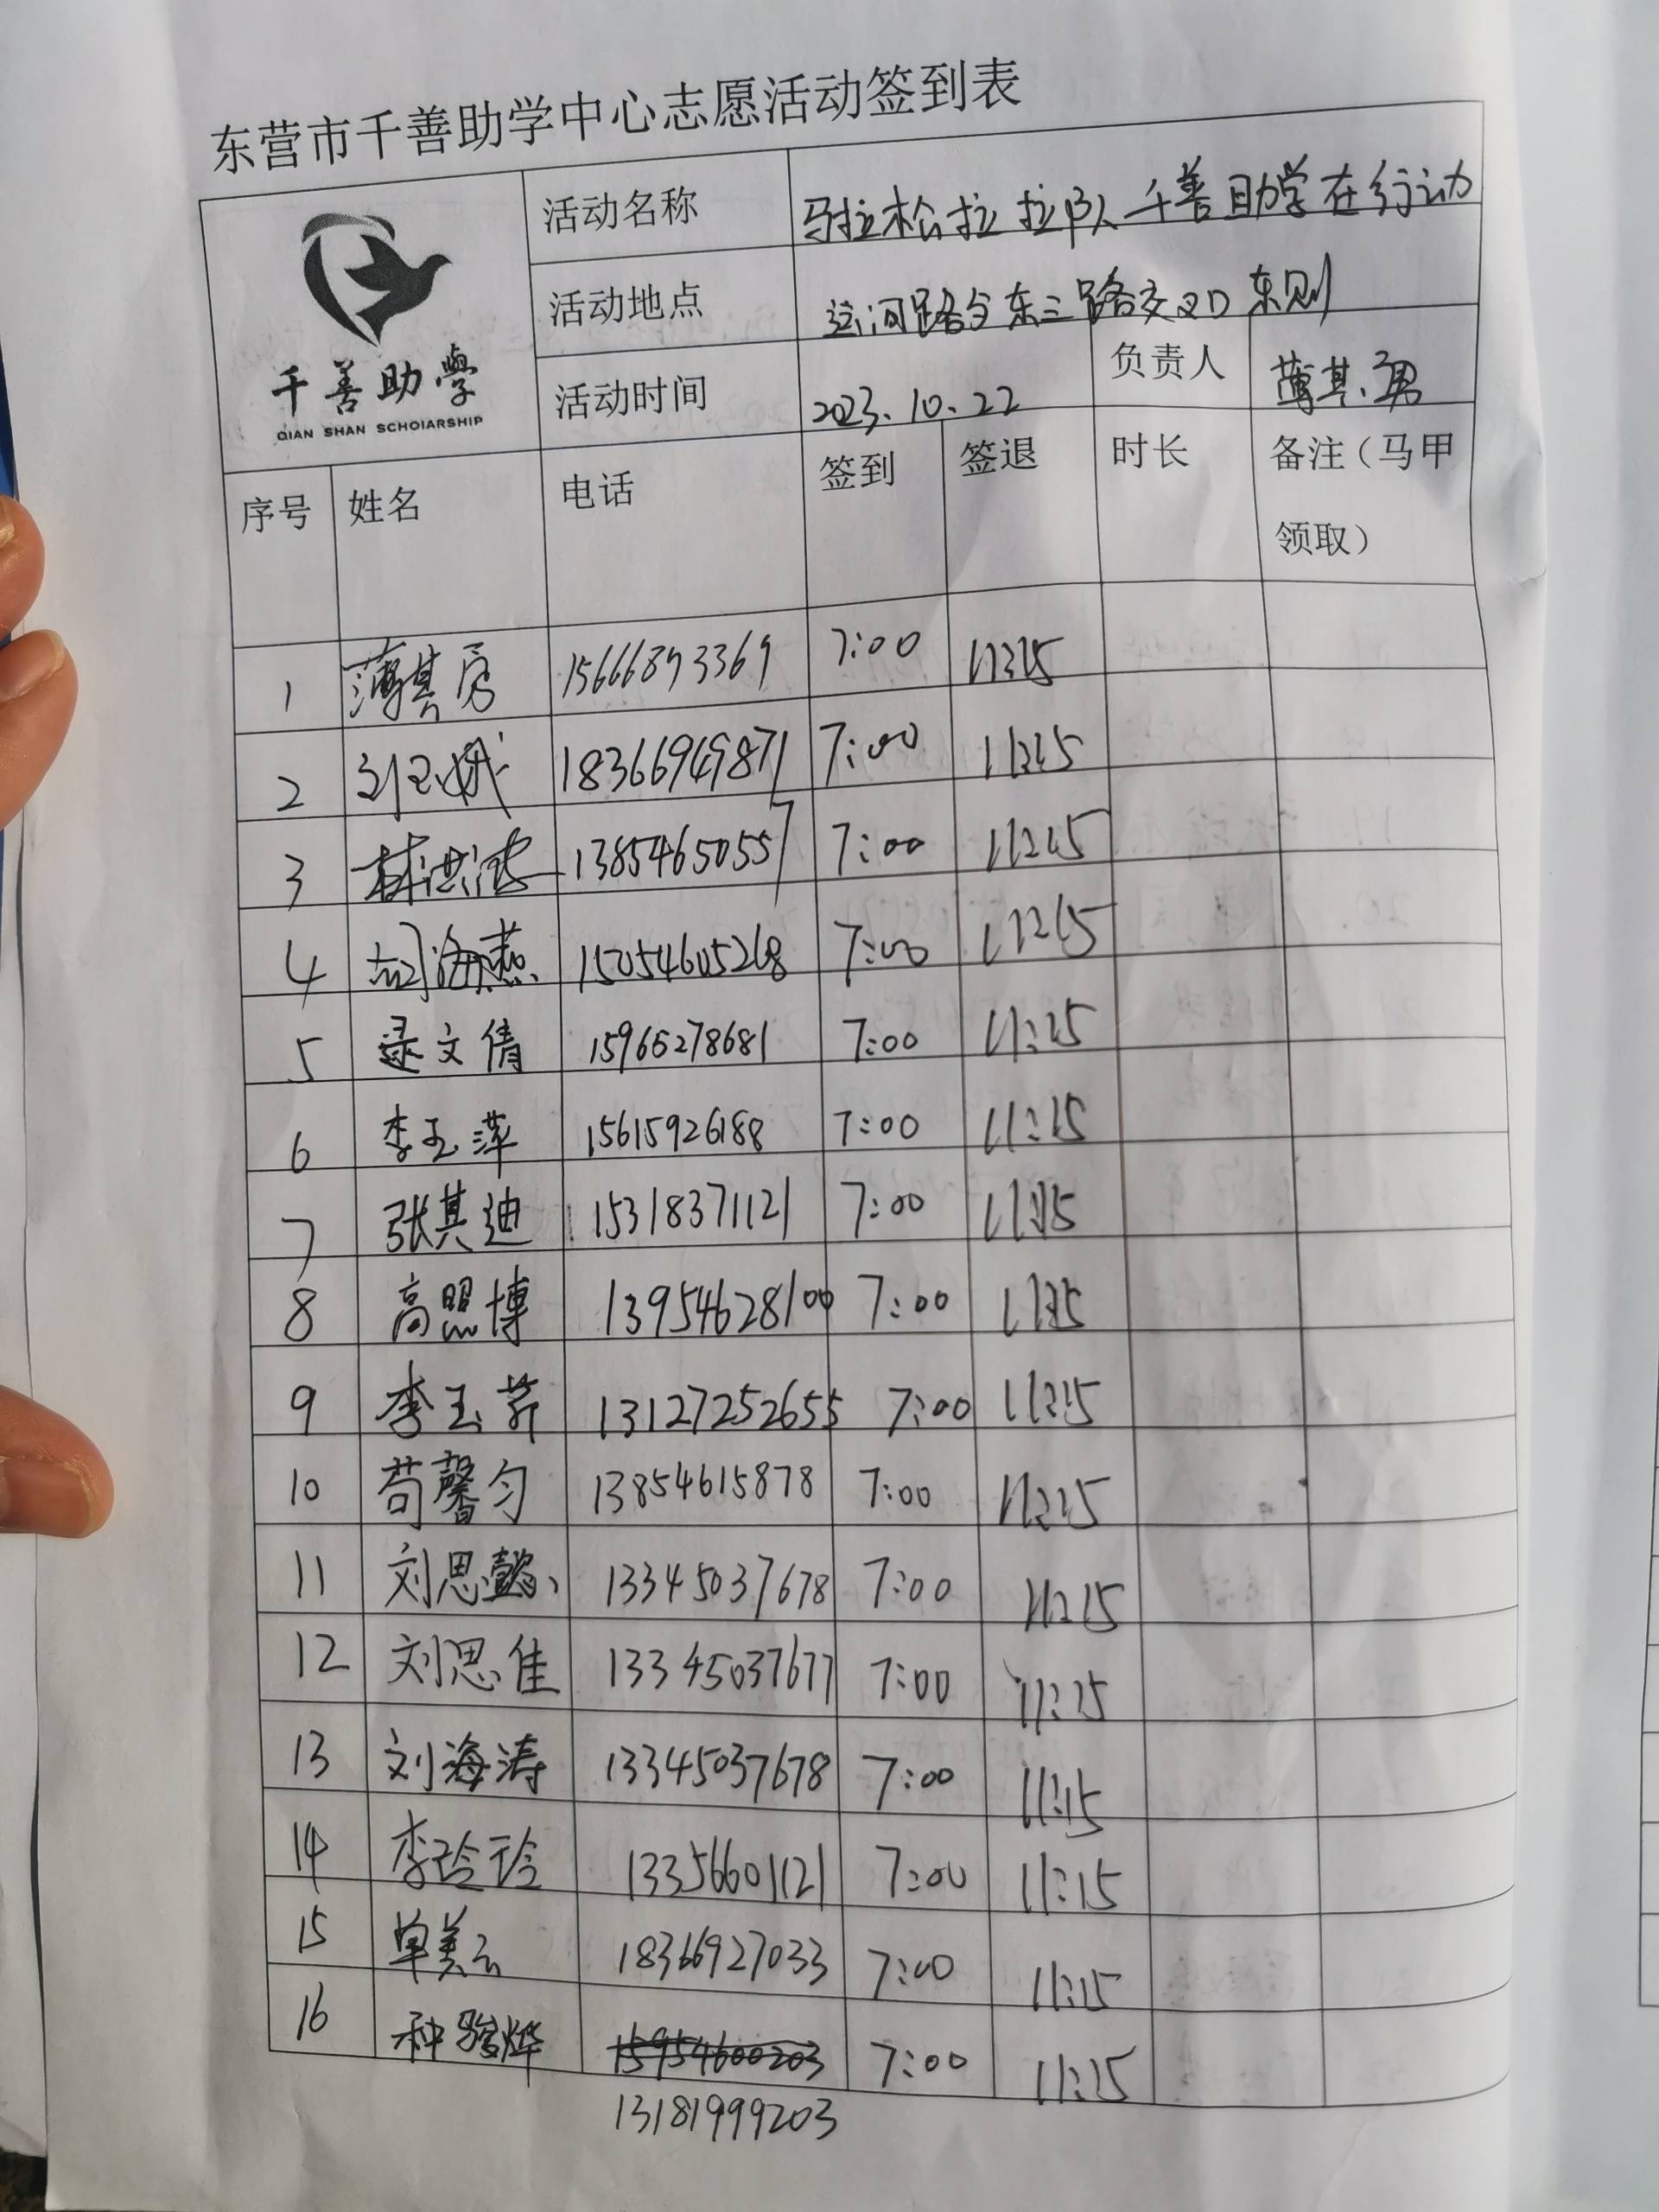 东营市千善助学中心志愿活动签到表
千善助學
QIAN SHAN SCHOlARSHIP
活动名称 马拉松拉拉队 千善助学在行动
活动地点 运河路与东三路交叉口东则
活动时间 2023.10.22 负责人 薄其男
序号 姓名 电话 签到 签退 时长 备注（马甲
领取）
1 薄其 15666893369 7:00
2 刘玉娥 7:00
3 林洪 13854650557 7:00
4 海燕 15054605268 7:00
5 逯文倩 15965278681 7:00 11:15
6 李玉萍 15615926188 7:00 11:15
7 张其迪 15318371121 7:00 11:15
8 高照博 13954628100 7:00
9 李玉芹 13127252655 7:00
10 苟馨匀 13854615878 7:00
11 刘思懿 13345037678 7:00
12 刘思佳 13345037677 7:00 11:15
13 刘海涛 13345037678 7:00 11:15
14 李玲玲 13356601121 7:00 11:15
15 单美云 18366927033 7:00 11:15
16 种骏烨 15954600203 7:00 11:15
13181999203